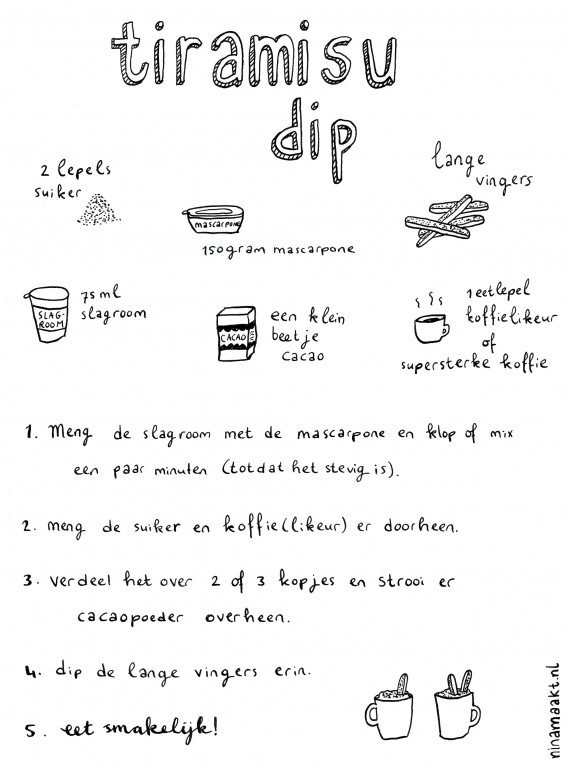 tiramisu
dip
2 lepels
suiker
mascarpone
150gram mascarpone
lange
vingers
SLAG-
ROOM
75 ml
slagroom
CACAO
een klein
beetje
cacao
1 eetlepel
koffielikeur
of
supersterke koffie
1. Meng de slagroom met de mascarpone en klop of mix
een paar minuten (totdat het stevig is).
2. meng de suiker en koffie(likeur) er doorheen.
3. verdeel het over 2 of 3 kopjes en strooi er
cacaopoeder overheen.
4. dip de lange vingers erin.
5. eet smakelijk!
ninamaakt.nl